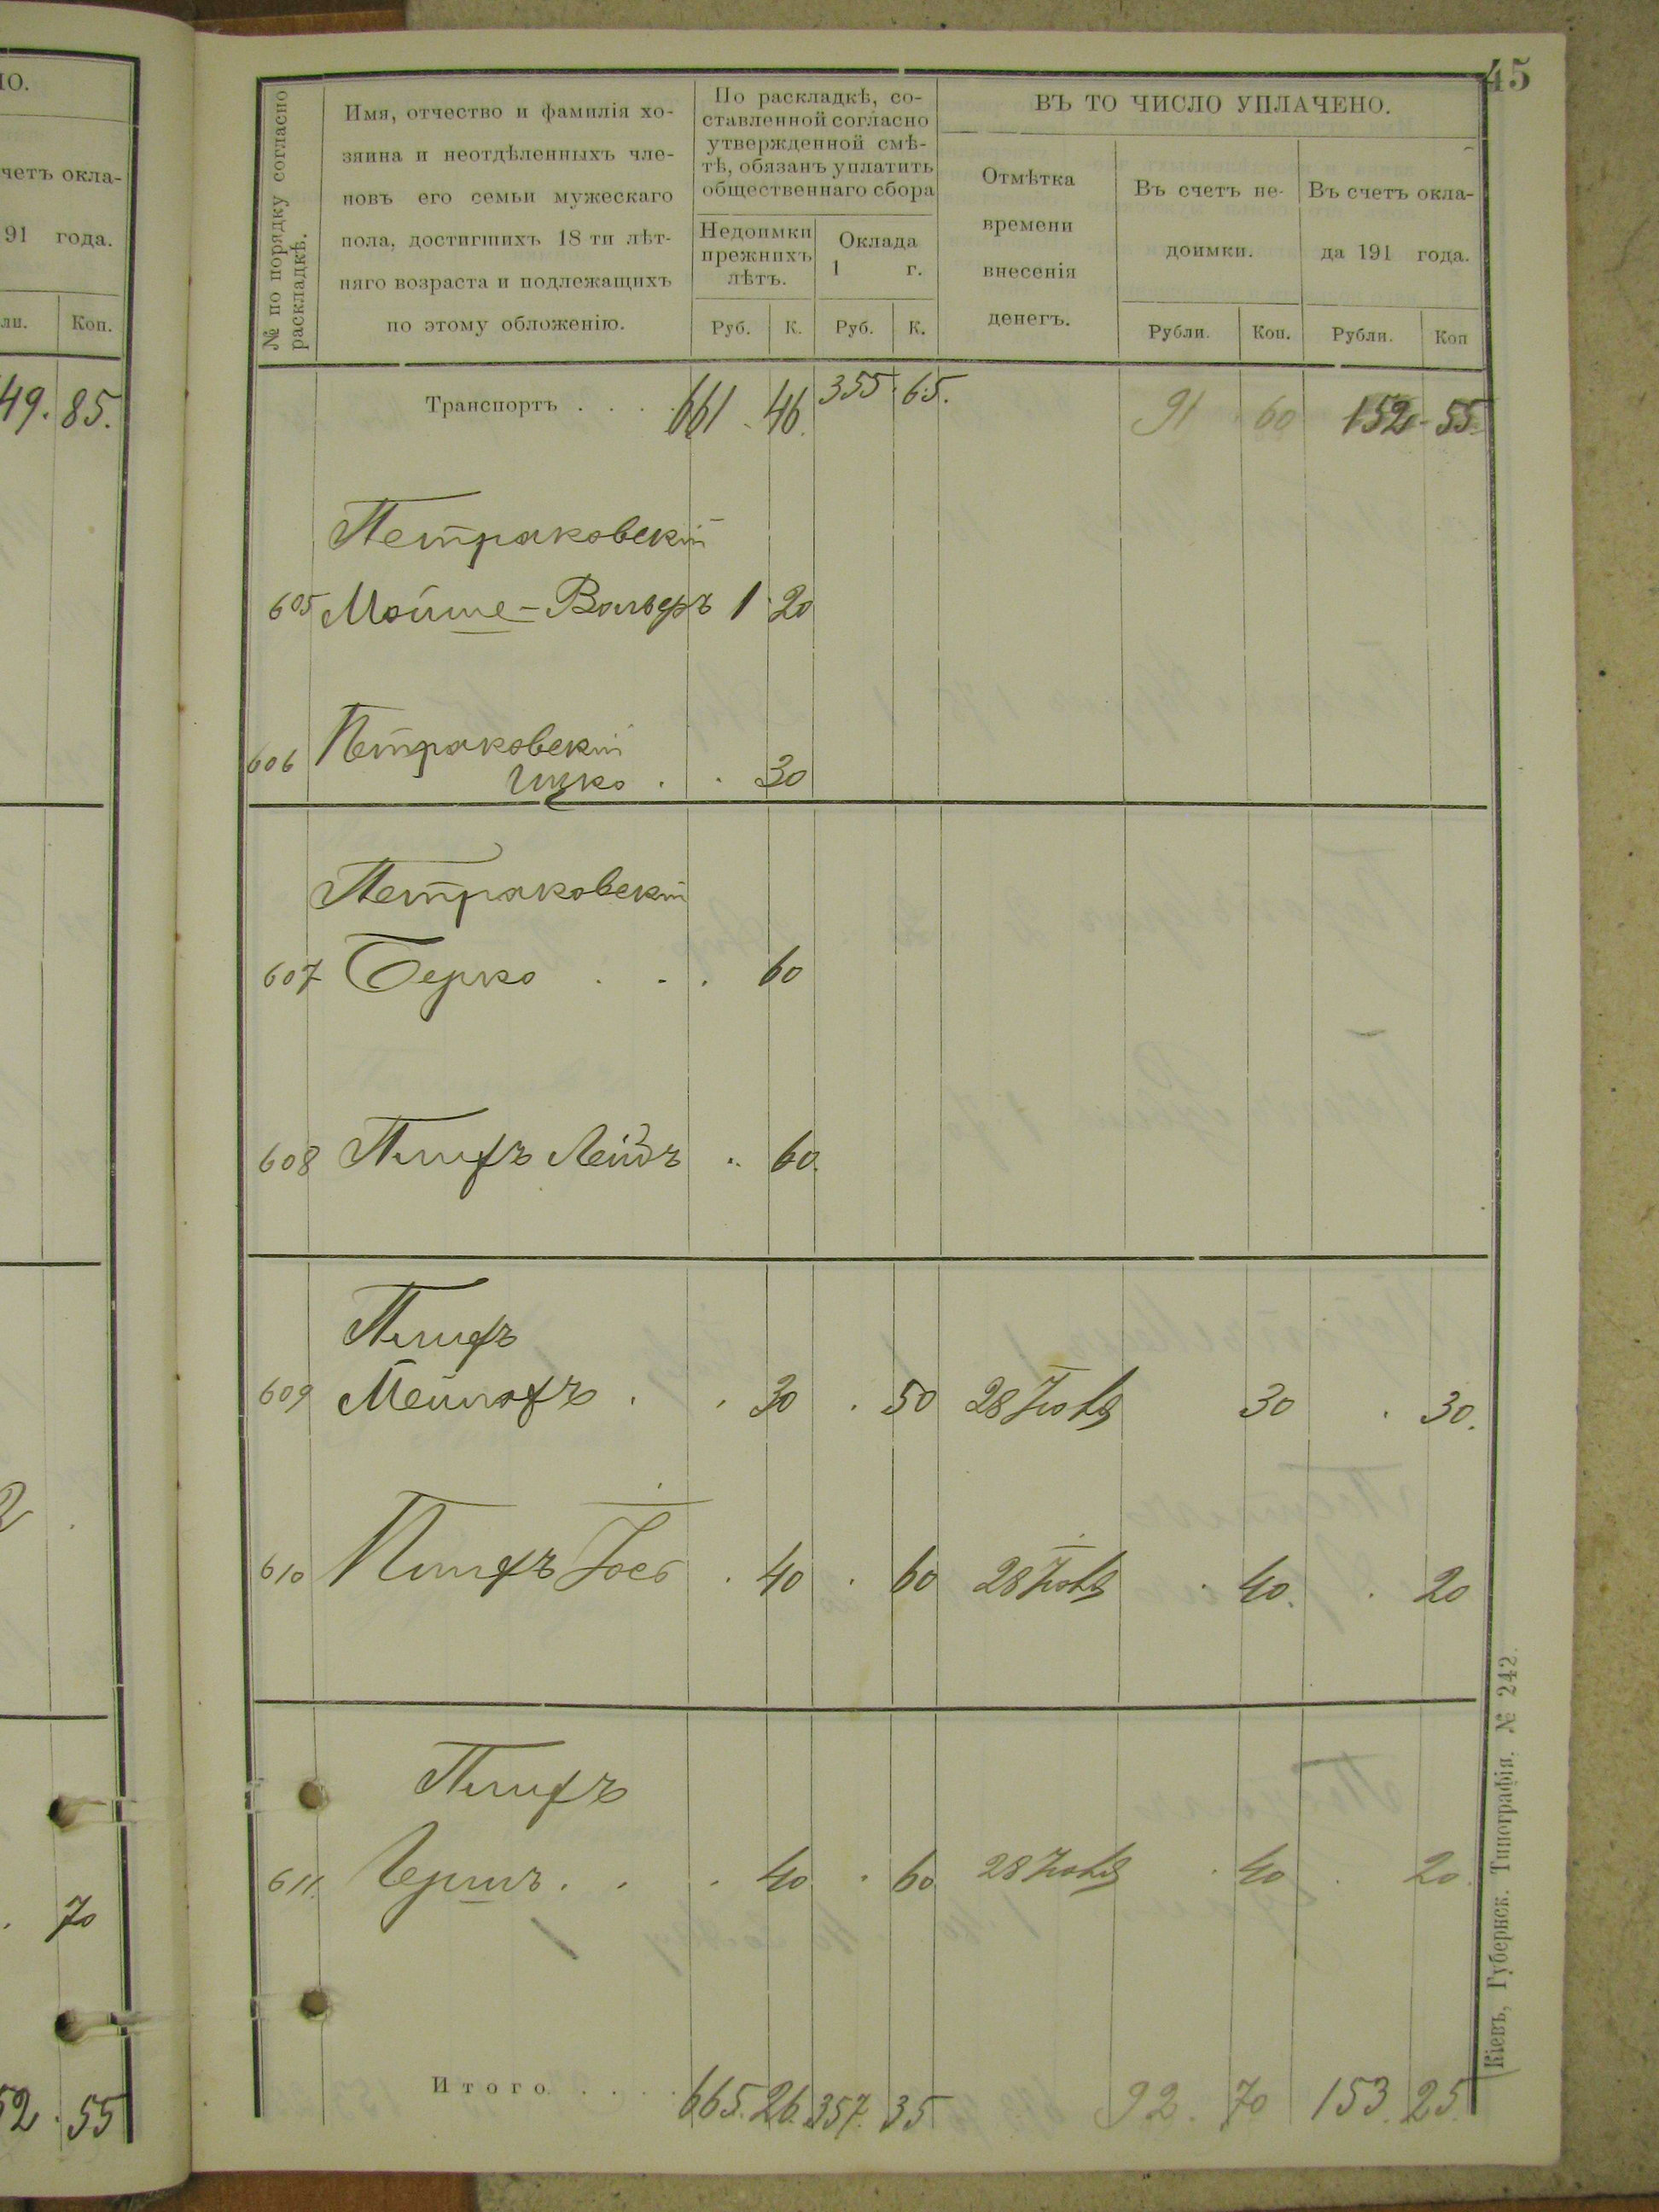 45
НО.
счетъ окла-
191 года.
Коп.
49. 85.
70
52. 55
№ по порядку согласно раскладкѣ.
Имя, отчество и фамилія хо-
зяина и неотдѣленныхъ чле-
новъ его семьи мужескаго
пола, достигшихъ 18 ти лѣт-
няго возраста и подлежащихъ
по этому обложенію.
По раскладкѣ, со-
ставленной согласно
утвержденной смѣ-
тѣ, обязанъ уплатить
общественнаго сбора
Недоимки
прежнихъ
лѣтъ.
Оклада
1 г.
Руб. К. Руб. К.
ВЪ ТО ЧИСЛО УПЛАЧЕНО.
Отмѣтка
времени
внесенія
денегъ.
Въ счетъ не-
доимки.
Рубли. Коп.
Въ счетъ окла-
да 191 года.
Рубли. Коп
Транспортъ . . . 661. 46. 355. 65. 91 60 152. 55.
Петраковскій
605 Мойше-Вольфъ 1 20
Петраковскій
606 Ицко . . 30
Петраковскій
607 Берко . . . 60
608 Пилифъ Лейбъ .. 60.
Пилифъ
609 Мейлахъ . . 30 . 50 28 Іюля 30 . 30.
610 Пилифъ Іосъ . 40 . 60 28 Іюля . 40. . 20
Пилифъ
611. Гершъ . . . 40 . 60 28 Іюля . 40 . 20.
Итого. . . . 665. 26. 357. 35 92. 70 153. 25.
Кіевъ, Губернск. Типографія. № 242.